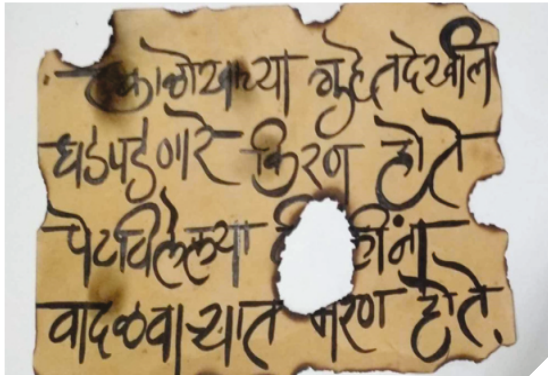 काळोखाच्या गुहेतदेखील
धडपडणारे किरण होते
पेटविलेल्या
वादळवाऱ्यात मरण होते.